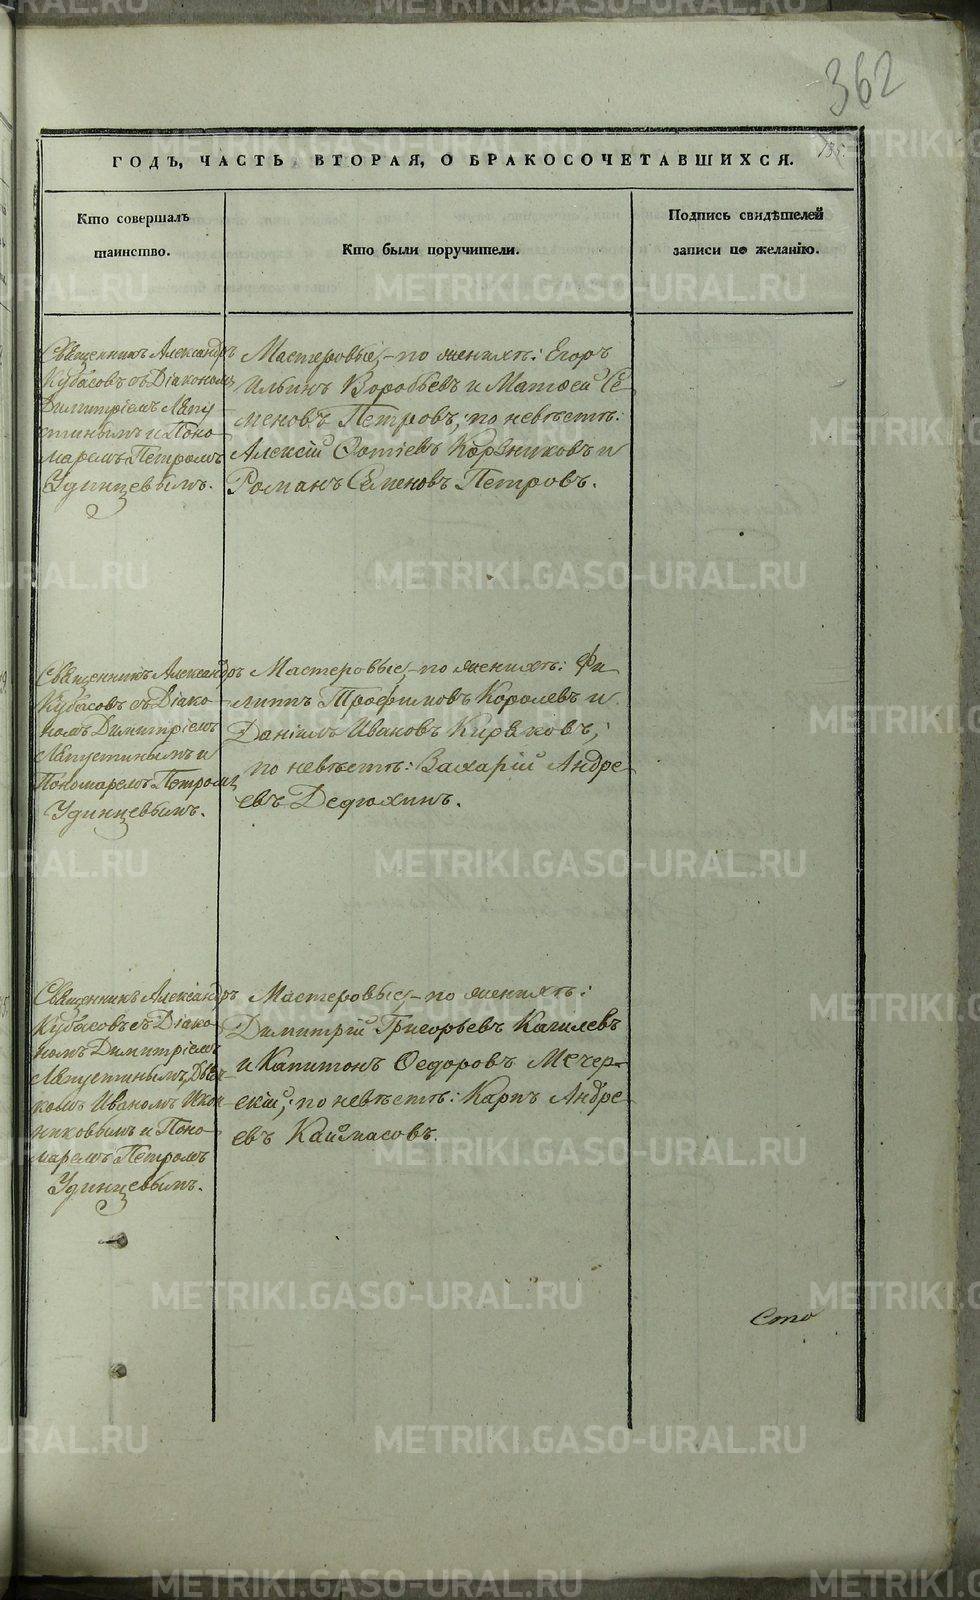 362
135.
ГОДЪ, ЧАСТЬ ВТОРАЯ, О БРАКОСОЧЕТАВШИХСЯ.
Кто совершалъ
таинство.
Кто были поручители.
Подпись свидѣтелей
записи по желанію.
Священникъ Александръ
Кубасовъ съ Діакономъ
Димитріемъ Лапу
стинымъ и Поно-
маремъ Петромъ
Удинцевымъ.
Мастеровые,-по женихѣ: Егоръ
Ильинъ Воробьевъ и Матѳей Се
меновъ Петровъ; по невѣстѣ:
Алексій Фотіевъ Коряниковъ и
Романъ Семеновъ Петровъ.
Священникъ Александръ
Кубасовъ съ Діако-
номъ Димитріемъ
Лапустинымъ и
Пономаремъ Петромъ
Удинцевымъ.
Мастеровые,-по женихѣ: Фи
липпъ Трофимовъ Королевъ и
Даніилъ Ивановъ Киряковъ;
по невѣстѣ: Захарій Андре
евъ Дедюхинъ.
Священникъ Александръ
Кубасовъ съ Діако-
номъ Димитріемъ
Лапустинымъ, Дьяч-
комъ Иваномъ Икон
никовымъ и Поно-
маремъ Петромъ
Удинцевымъ.
Мастеровые,-по женихѣ:
Димитрій Григорьевъ Качилевъ
и Капитонъ Ѳедоровъ Мечер-
скій; по невѣстѣ: Карпъ Андре
евъ Каймасовъ.
Сто
METRIKI.GASO-URAL.RU